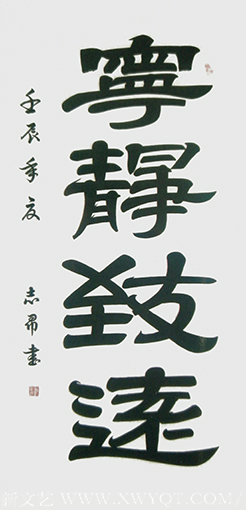 寧靜致遠
壬辰年夏
志昂書
www.xwyqt.com